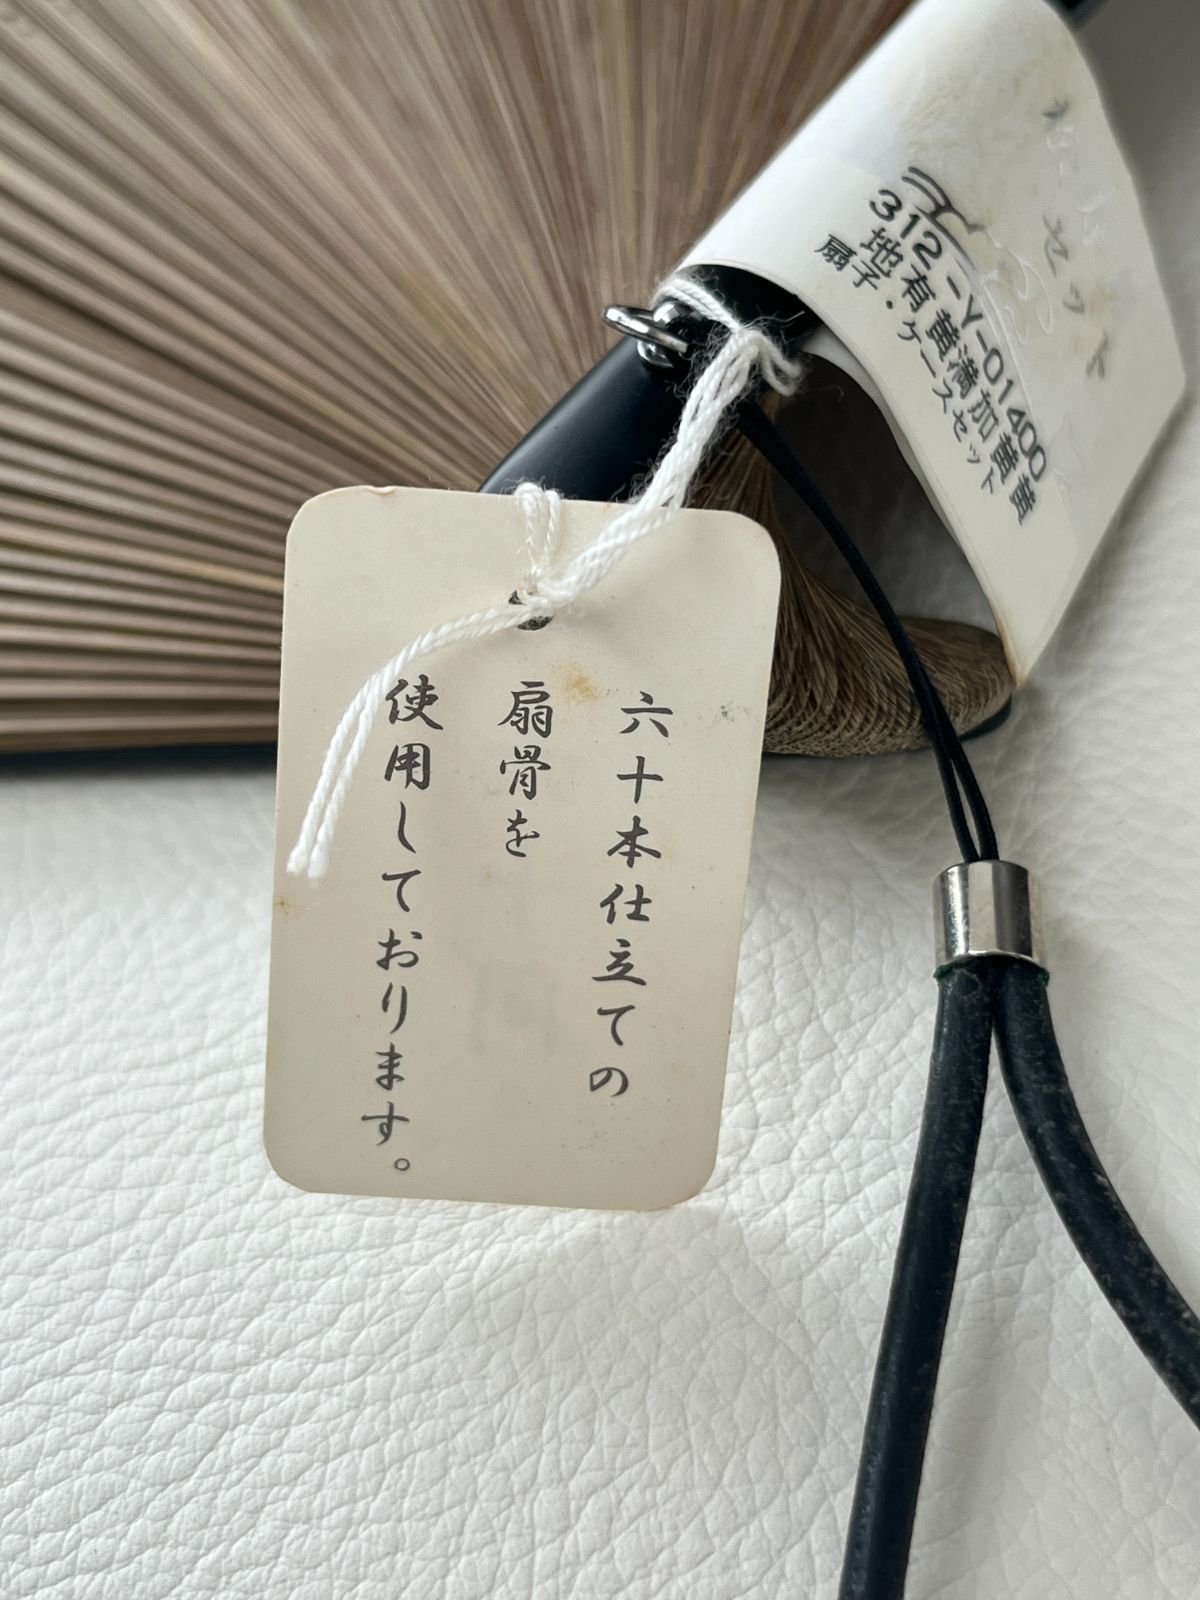 六十本仕立ての
扇骨を
使用しております。
312-Y-01400
地有黄満加黄黄
扇子・ケースセット
セット